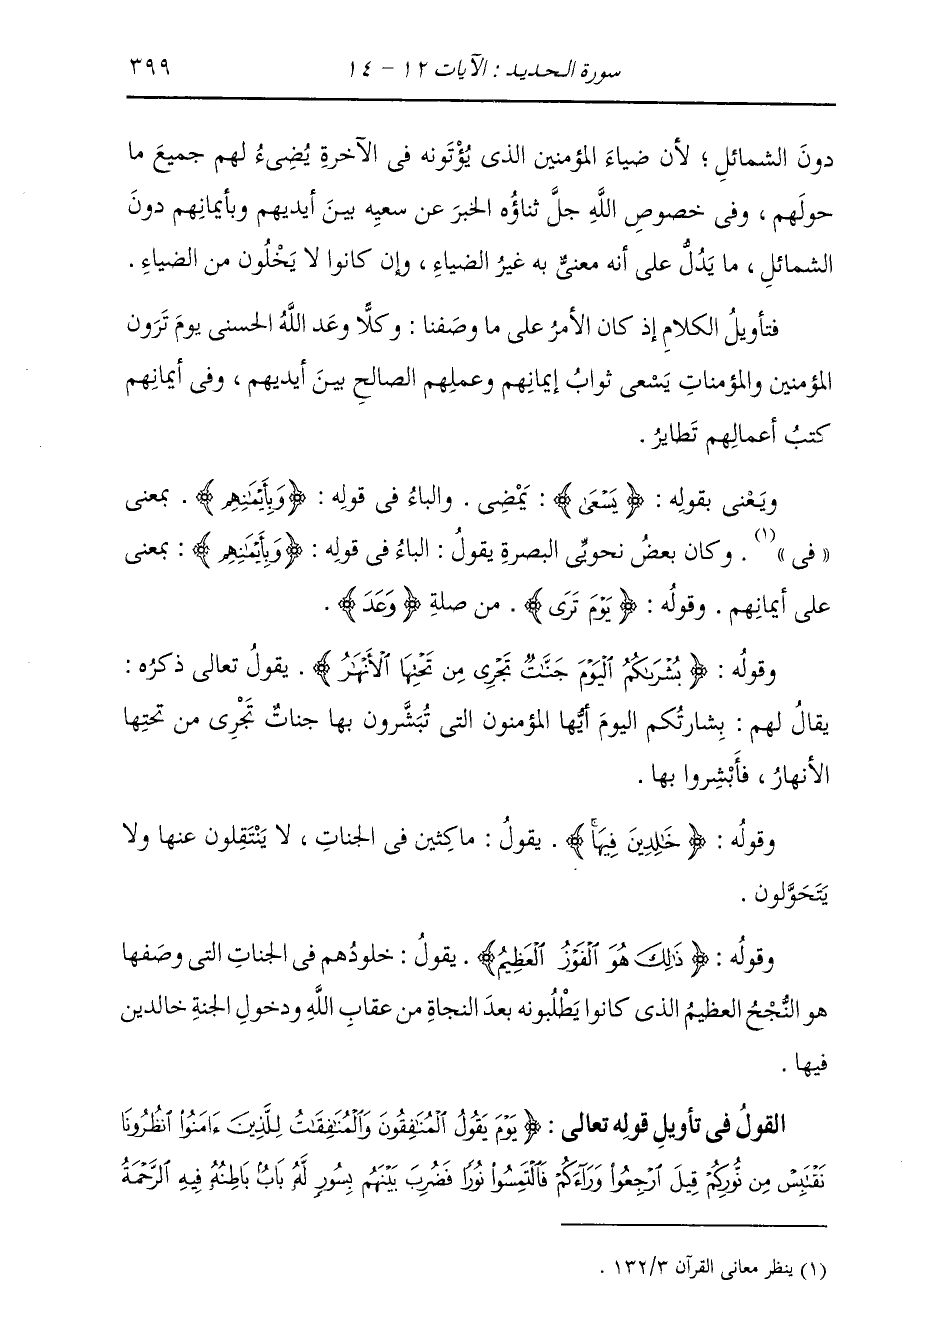 سورة الحديد : الآيات ١٢ - ١٤ ٣٩٩
دونَ الشمائلِ ؛ لأن ضياءَ المؤمنين الذى يُؤْتَونه فى الآخرةِ يُضِىءُ لهم جميعَ ما
حولَهم ، وفى خصوصِ اللَّهِ جلَّ ثناؤُه الخبرَ عن سعيِه بينَ أيديهم وبأيمانِهم دونَ
الشمائلِ ، ما يَدُلُّ على أنه معنىٌّ به غيرُ الضياءِ ، وإن كانوا لا يَخْلُون من الضياءِ .
فتأويلُ الكلامِ إذ كان الأمرُ على ما وصَفنا : وكلًّا وعَد اللَّهُ الحسنى يومَ تَرَون
المؤمنين والمؤمناتِ يَسْعى ثوابُ إيمانِهم وعملِهم الصالحِ بينَ أيديهم ، وفى أيمانِهم
كتبُ أعمالِهم تَطايرُ .
ويَعْنى بقولِه : ﴿ يَسْعَىٰ ﴾ : يَمْضِى . والباءُ فى قولِه : ﴿ وَبِأَيْمَٰنِهِم ﴾ . بمعنى
« فى »(١) . وكان بعضُ نحويِّى البصرةِ يقولُ : الباءُ فى قولِه : ﴿ وَبِأَيْمَٰنِهِم ﴾ : بمعنى
على أيمانِهم . وقولُه : ﴿ يَوْمَ تَرَى ﴾ . من صلةِ ﴿ وَعَدَ ﴾ .
وقولُه : ﴿ بُشْرَىٰكُمُ ٱلْيَوْمَ جَنَّٰتٌ تَجْرِى مِن تَحْتِهَا ٱلْأَنْهَٰرُ ﴾ . يقولُ تعالى ذكرُه :
يقالُ لهم : بِشارتُكم اليومَ أيُّها المؤمنون التى تُبَشَّرون بها جناتٌ تَجْرِى من تحتِها
الأنهارُ ، فأَبْشِروا بها .
وقولُه : ﴿ خَٰلِدِينَ فِيهَا ﴾ . يقولُ : ماكثين فى الجناتِ ، لا يَنْتَقِلون عنها ولا
يَتَحَوَّلون .
وقولُه : ﴿ ذَٰلِكَ هُوَ ٱلْفَوْزُ ٱلْعَظِيمُ ﴾ . يقولُ : خلودُهم فى الجناتِ التى وصَفها
هو النُّجْحُ العظيمُ الذى كانوا يَطْلُبونه بعدَ النجاةِ من عقابِ اللَّهِ ودخولِ الجنةِ خالدين
فيها .
القولُ فى تأويلِ قولِه تعالى : ﴿ يَوْمَ يَقُولُ ٱلْمُنَٰفِقُونَ وَٱلْمُنَٰفِقَٰتُ لِلَّذِينَ ءَامَنُوا۟ ٱنظُرُونَا
نَقْتَبِسْ مِن نُّورِكُمْ قِيلَ ٱرْجِعُوا۟ وَرَآءَكُمْ فَٱلْتَمِسُوا۟ نُورًا فَضُرِبَ بَيْنَهُم بِسُورٍ لَّهُۥ بَابٌۢ بَاطِنُهُۥ فِيهِ ٱلرَّحْمَةُ
(١) ينظر معانى القرآن ١٣٢/٣ .